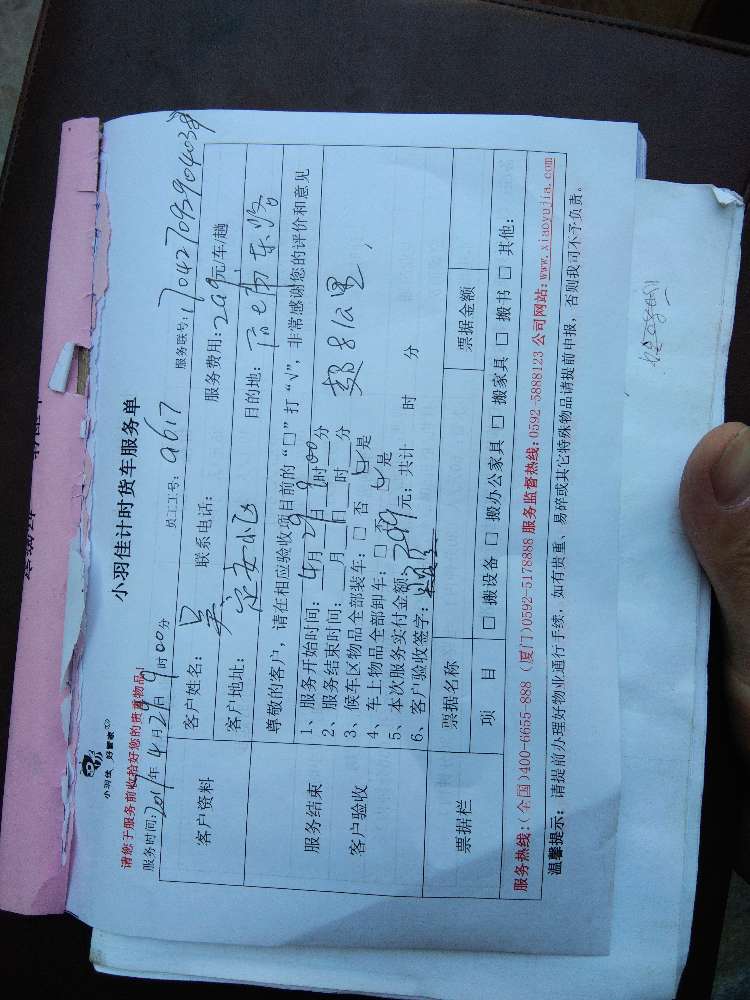 小羽佳 好管家
小羽佳计时货车服务单
请您于服务前收拾好您的贵重物品!
服务时间: 年4月29日9时00分 员工工号: 9617 服务联号: 170427093904038
客户资料
客户姓名: 吴 联系电话: 服务费用: 299元/车/趟
客户地址: 目的地:
服务结束
客户验收
尊敬的客户，请在相应验收项目前的“□”打“√”，非常感谢您的评价和意见
1、服务开始时间: 4月29日9时00分
2、服务结束时间: 月 日 时 分 超8公里
3、候车区物品全部装车: □ 否 ☑ 是
4、车上物品全部卸车: □ 否 ☑ 是
5、本次服务实付金额: 299元; 共计 时 分
6、客户验收签字:
票据栏
票据名称 票据金额
项 目 □ 搬设备 □ 搬办公家具 □ 搬家具 □ 搬书 □ 其他:
服务热线:(全国)400-6655-888 (厦门)0592-5178888 服务监督热线:0592-5888123 公司网站:www.xiaoyujia.com
温馨提示: 请提前办理好物业通行手续，如有贵重、易碎或其它特殊物品请提前申报，否则我司不予负责。